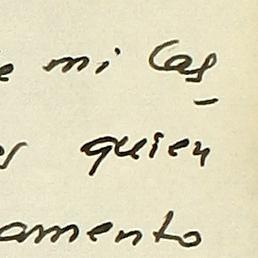 e mi Cas
-
s quien
amento